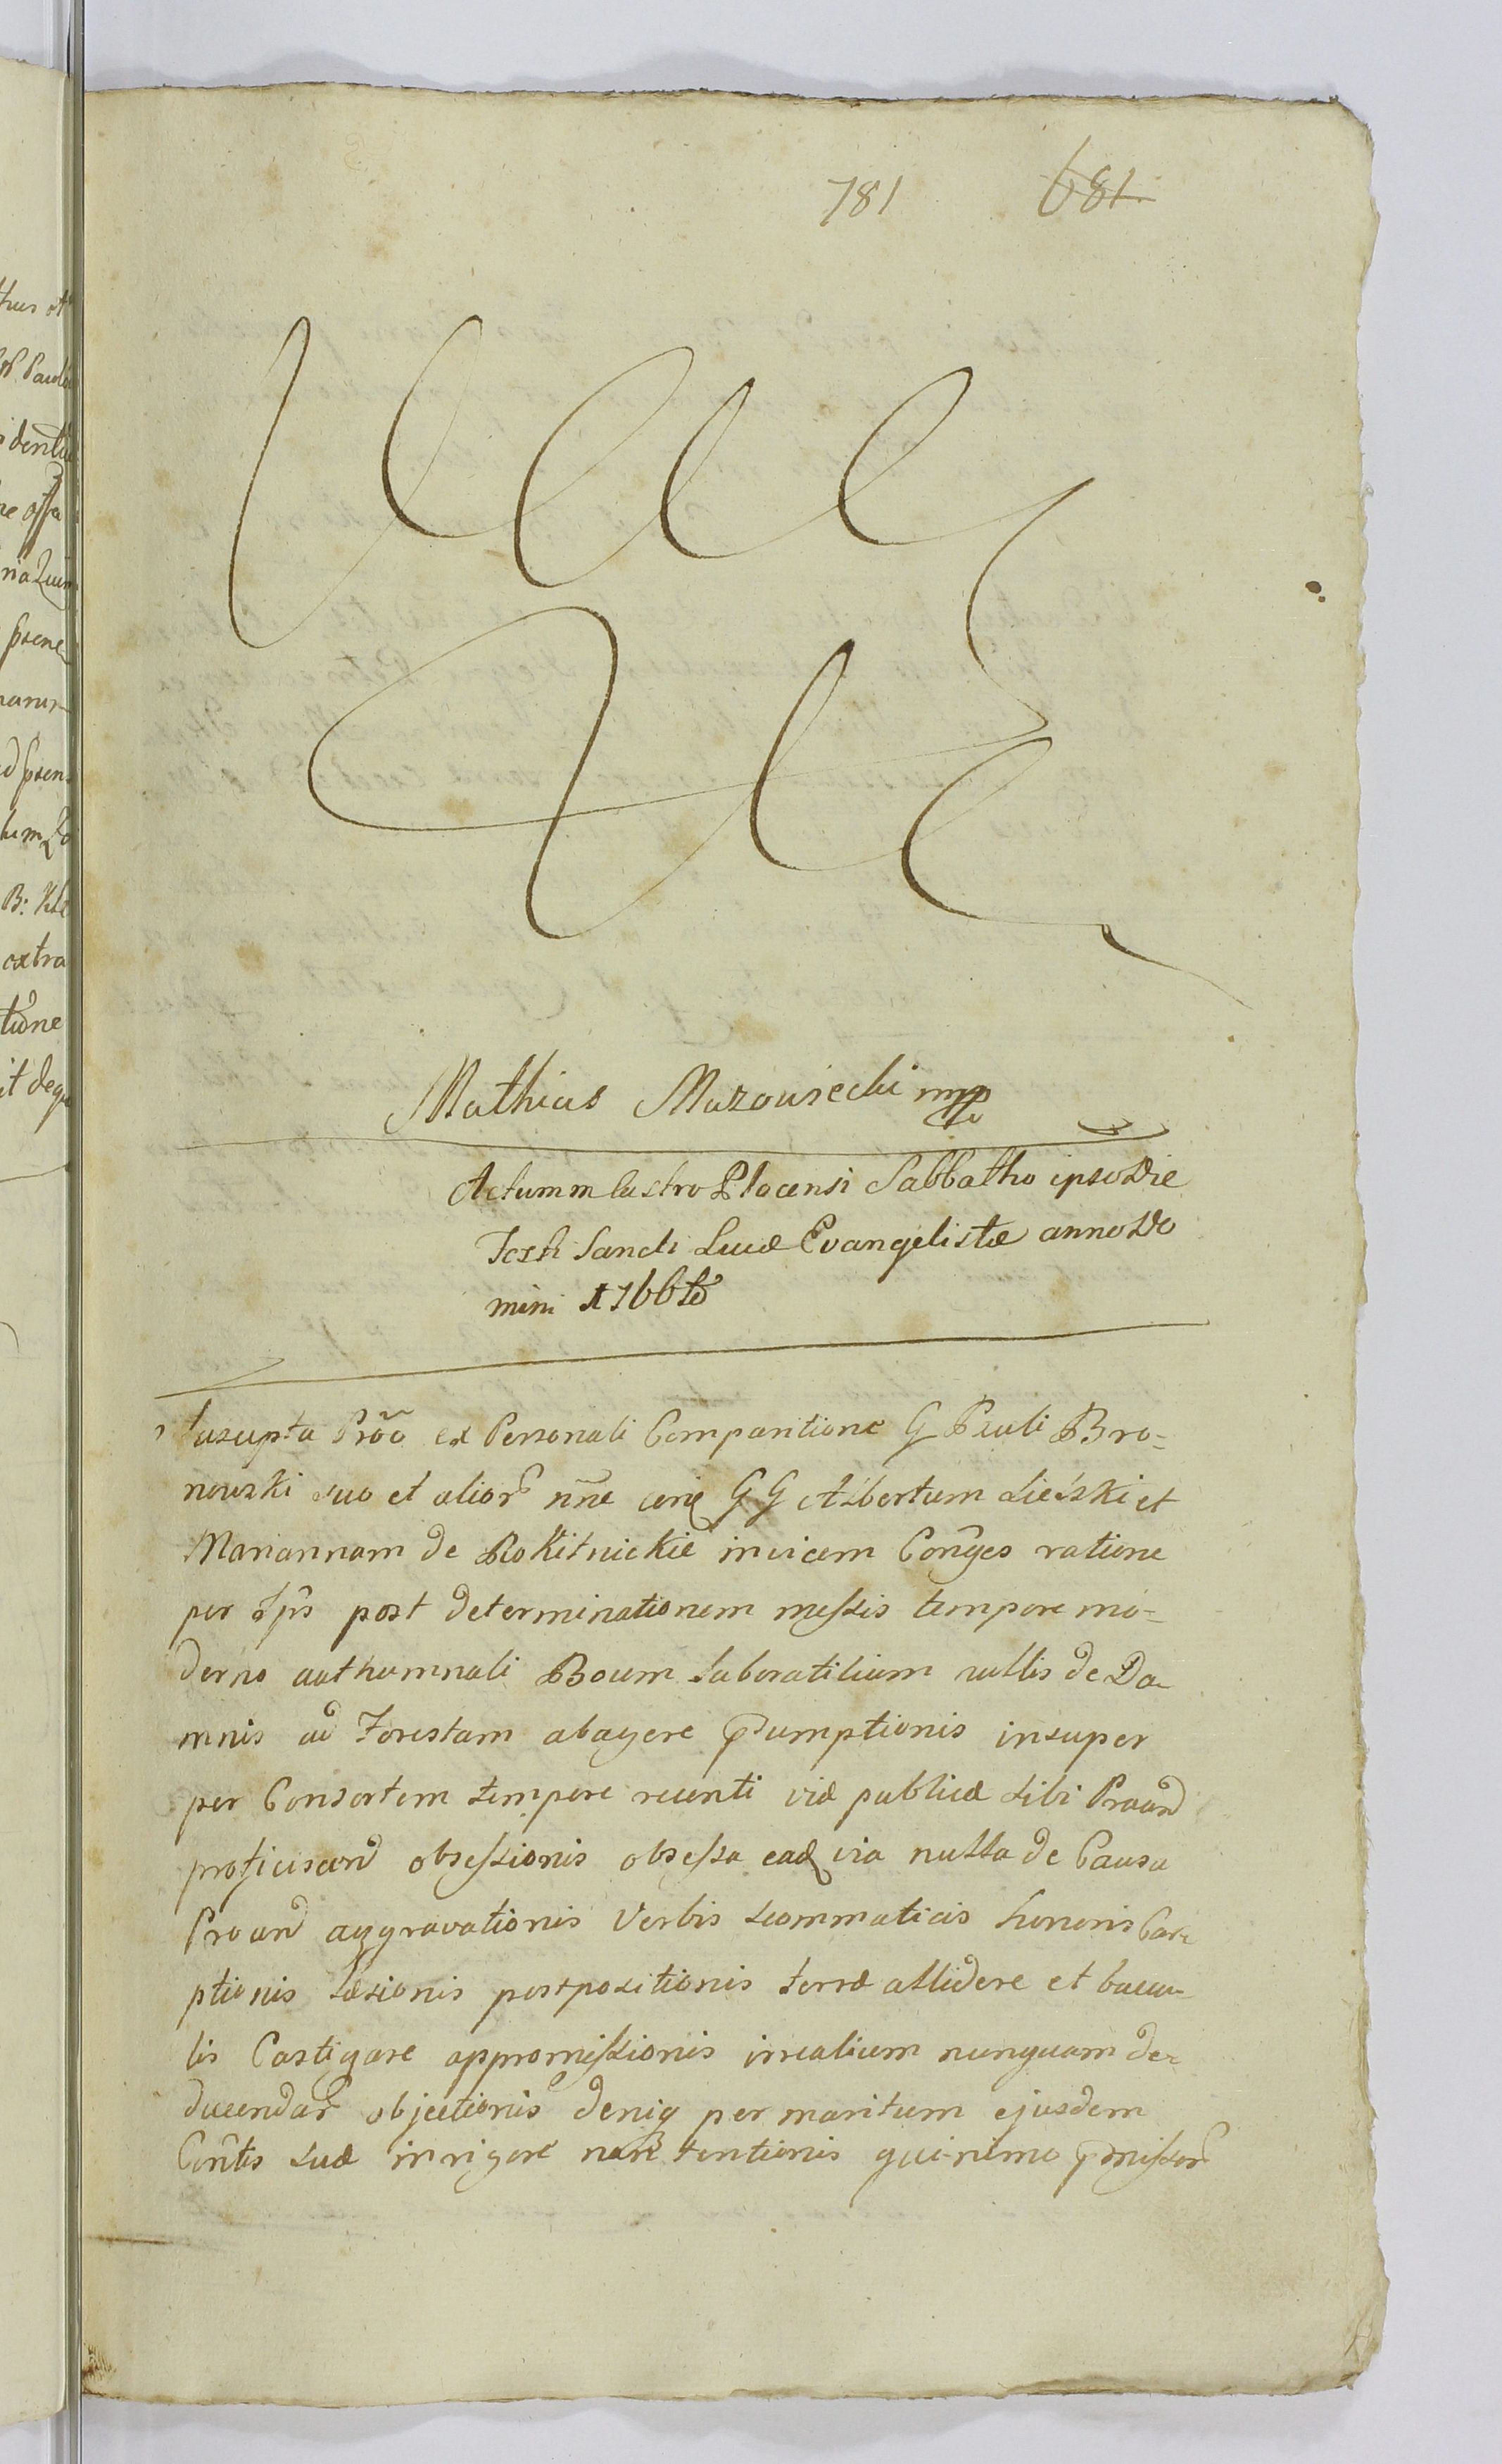 781 681.
Mathias Mazowiecki mpp
Actum in Castro Plocensi Sabbatho ipso Die
Festi Sancti Lucæ Evangelistæ anno Do
mini 1766to
Suscepta Proõ ex Personali Comparitione G Pauli Bro=
nowski suo et alior nñe cõn GG Albertum Lieski et
Mariannam de Rokitnickie invicem Conges ratione
per Ips post determinationem messis tempore mo=
derno authumnali Boum laboratilium nullis de Da
mnis ad Forestam abagere Psumptionis insuper
per Consortem tempore recenti viæ publicæ sibi Proand
proficiscend obsessionis obsessa ead via nulla de Causa
Proand aggravationis Verbis scommaticis honoris Car=
ptionis Læsionis postpositionis terræ allidere et bacu=
lis Castigare appromissionis irrealium nunquam de=
ducendar objectionis deniq per maritum ejusdem
Contis suæ in rigore non tentionis qui nimo pmissor